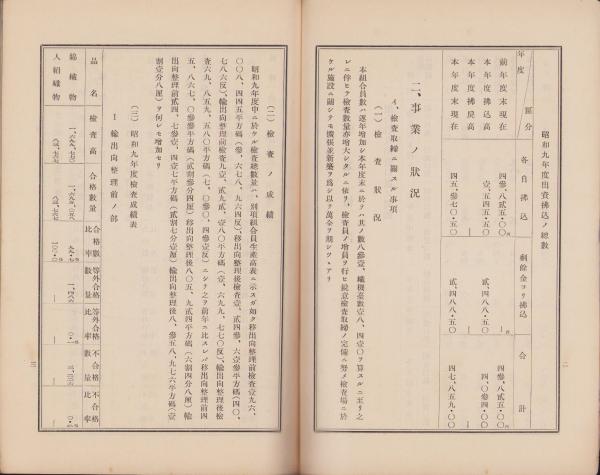 昭和九年度出資拂込ノ總數
年度　區分　各自拂込　剩餘金ヨリ拂込　合計
前年度末現在　四參、八貳五・〇〇　—　四參、八貳五・〇〇
本年度拂込高　壹、五四五・〇〇　貳、四八八・五〇　四、〇參四・〇〇
本年度末現在　四五、參七〇・五〇　貳、四八八・五〇　四七、八五九・〇〇
二、事業ノ狀況
イ、檢査取締ニ關スル事項
（一）檢査狀況
本組合員數ハ逐年增加シ本年度末ニ於テハ其ノ數八參壹、織機臺數壹八、四壹〇ヲ算スルニ至リ之
レニ伴ヒテ檢査數量亦增大シタルニ依リ、檢査員ノ增員ヲ行ヒ銳意檢査取締ノ完備ニ努メ檢査場ニ於
ケル施設ニ關シテモ擴張並新築ヲ爲シ以テ萬全ヲ期シツヽアリ
二
（二）檢査ノ成績
昭和九年度中ニ於ケル檢査總數量ハ、別項組合員生產高表ニ示スガ如ク移出向整理前檢査壹九六、
〇〇八、四四五平方碼（參、六七八、九六四反）、移出向整理後檢査壹、貳四參、六壹參平方碼（四〇、
七八六反）、輸出向整理前檢査九壹、貳九貳、壹八〇平方碼（壹、六九九、七七〇反）、輸出向整理後檢
查六九、八五九、五八〇平方碼（七、〇參〇、四參壹反）ニシテ之ヲ前年ニ比スレバ移出向整理前四
五、八六七、〇參參平方碼（貳割參分四厘）移出向整理後八〇五、九貳四平方碼（六割四分八厘）輸
出向整理前貳四、七參壹、四壹七平方碼（貳割七分壹厘）輸出向整理後八、參五八、九七六平方碼（壹
割壹分八厘）ヲ何レモ增加セリ
（三）昭和九年度檢査成績表
1　輸出向整理前ノ部
品名　檢査高　合格數量　合格數比率　等外合格數量　等外合格比率　不合格數量　不合格比率
綿織物
人絹織物　一〇〇・〇　—　—　—　—
三